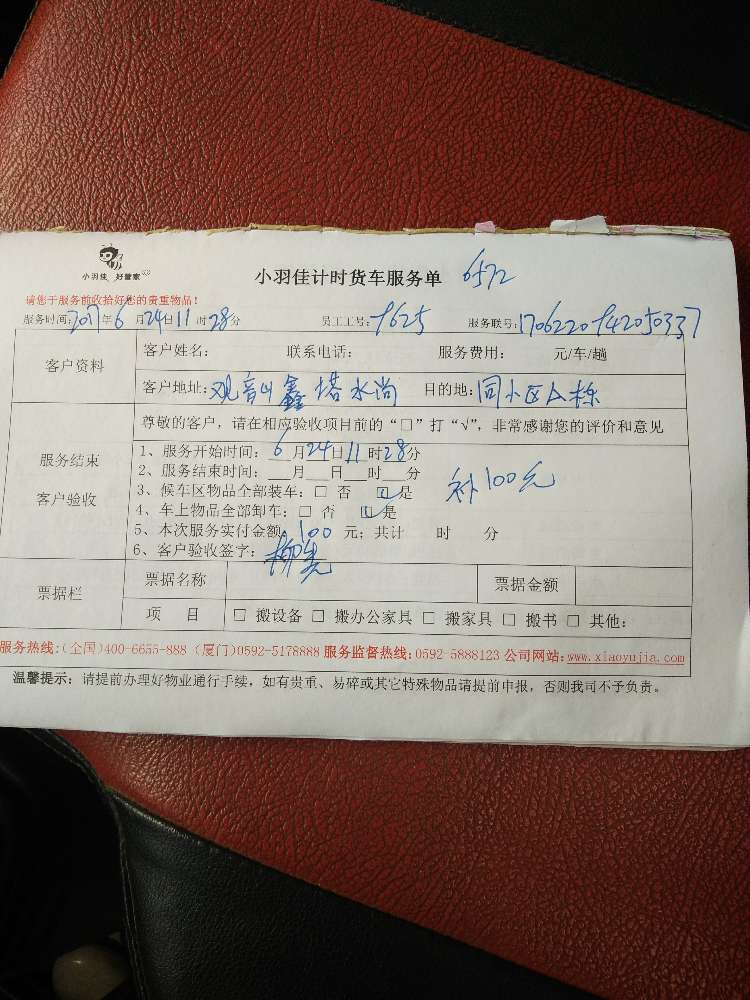 小羽佳 好管家
小羽佳计时货车服务单 6572
请您于服务前收拾好您的贵重物品!
服务时间:2017年6月24日11时28分 员工工号:9625 服务联号:1706220942050337
客户资料
客户姓名: 联系电话: 服务费用: 元/车/趟
客户地址:观音山鑫塔水尚 目的地:同小区A栋
服务结束
客户验收
尊敬的客户,请在相应验收项目前的“□”打“√”,非常感谢您的评价和意见
1、服务开始时间:6月24日11时28分
2、服务结束时间:___月___日___时___分
3、候车区物品全部装车:□ 否 ☑是
补100元
4、车上物品全部卸车:□ 否 ☑是
5、本次服务实付金额:100元;共计 时 分
6、客户验收签字:
票据栏
票据名称 票据金额
项 目 □ 搬设备 □ 搬办公家具 □ 搬家具 □ 搬书 □ 其他:
服务热线:(全国)400-6655-888 (厦门)0592-5178888 服务监督热线:0592-5888123 公司网站:www.xiaoyujia.com
温馨提示:请提前办理好物业通行手续,如有贵重、易碎或其它特殊物品请提前申报,否则我司不予负责。